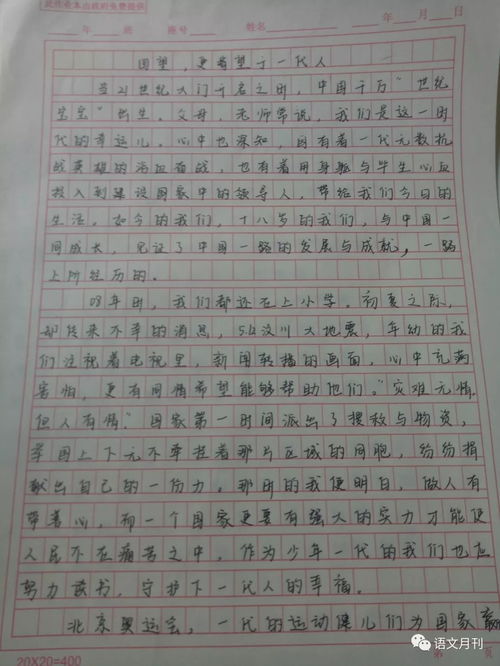 此作业本由政府免费提供
年 班 座号 姓名 年 月 日
回望，更希望于一代人
当21世纪大门千名之时，中国千万“世纪
宝宝”出生。父母，老师常说，我们是这一时
代的幸运儿。心中也深知，因有着一代无数抗
战英雄的浴血奋战，也有着用身躯与毕生心血
投入到建设国家中的领导人，带给我们今日的
生活。如今的我们，十八岁的我们，与中国一
同成长，见证了中国一路的发展与成就，一路
上所经历的。
08年时，我们都还在上小学。初夏之际，
却传来不幸的消息，5.12汶川大地震，年幼的我
们注视着电视里，新闻转播的画面，心中充满
害怕，更有同情希望能够帮助他们。“灾难无情
但人有情”国家第一时间派出了搜救与物资，
举国上下无不牵挂着那片区域的同胞，纷纷捐
献出自己的一份力。那时的我便明白，做人有
带着心，而一个国家更要有强大的实力才能使
人民不在痛苦之中，作为少年一代的我们也应
努力读书，守护下一代人的幸福。
北京奥运会，一代的运动健儿们为国家赢
20X20=400 第 页
语文月刊